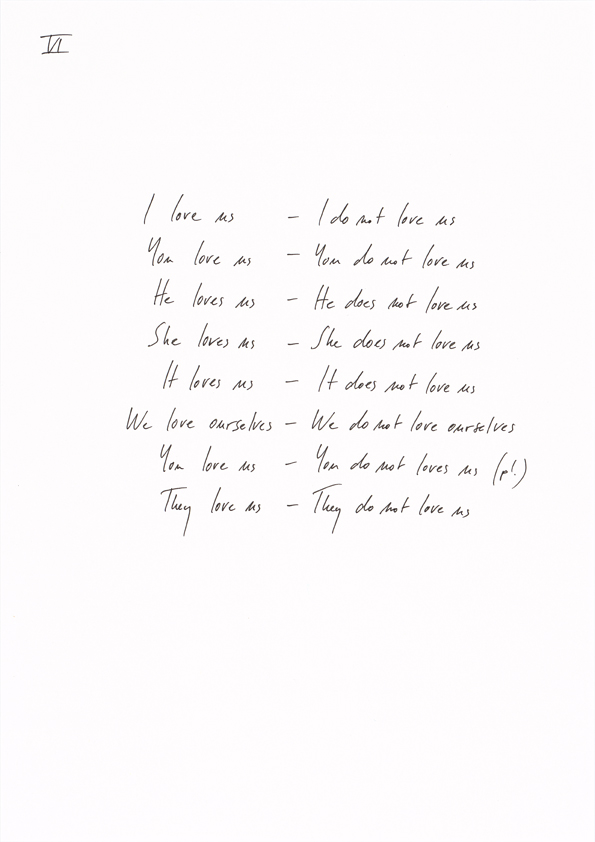 VI
I love us – I do not love us
You love us – You do not love us
He loves us – He does not love us
She loves us – She does not love us
It loves us – It does not love us
We love ourselves – We do not love ourselves
You love us – You do not loves us (pl.)
They love us – They do not love us